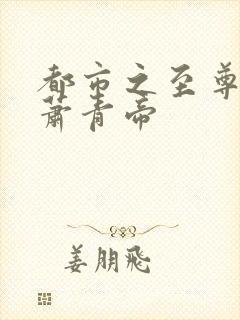 都市之至尊
萧青帝
姜朋飞